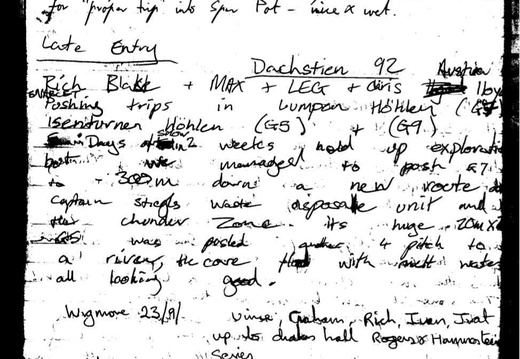 for "proper trip" into Spur Pot - nice & wet.
Late Entry
Dachstien 92 Austria
Rich Blake + MAX + LEG + Chris
Pushing trips in Lumpen Höhlen (G7)
Höhlen (G5) + (G9)
Days snow in 2 weeks held up exploration
but we managed to push G7
to - 300m down a new route
Captain siegls waste disposable unit and
the chunder Zone its huge 20m x
G5 was pushed 4 pitch to
a river, the cave with water
all looking good.
Wigmore 23/9/ Vince, Graham, Rich, Ivan,
up to drakes hall Rogers & Hammerstein
Series